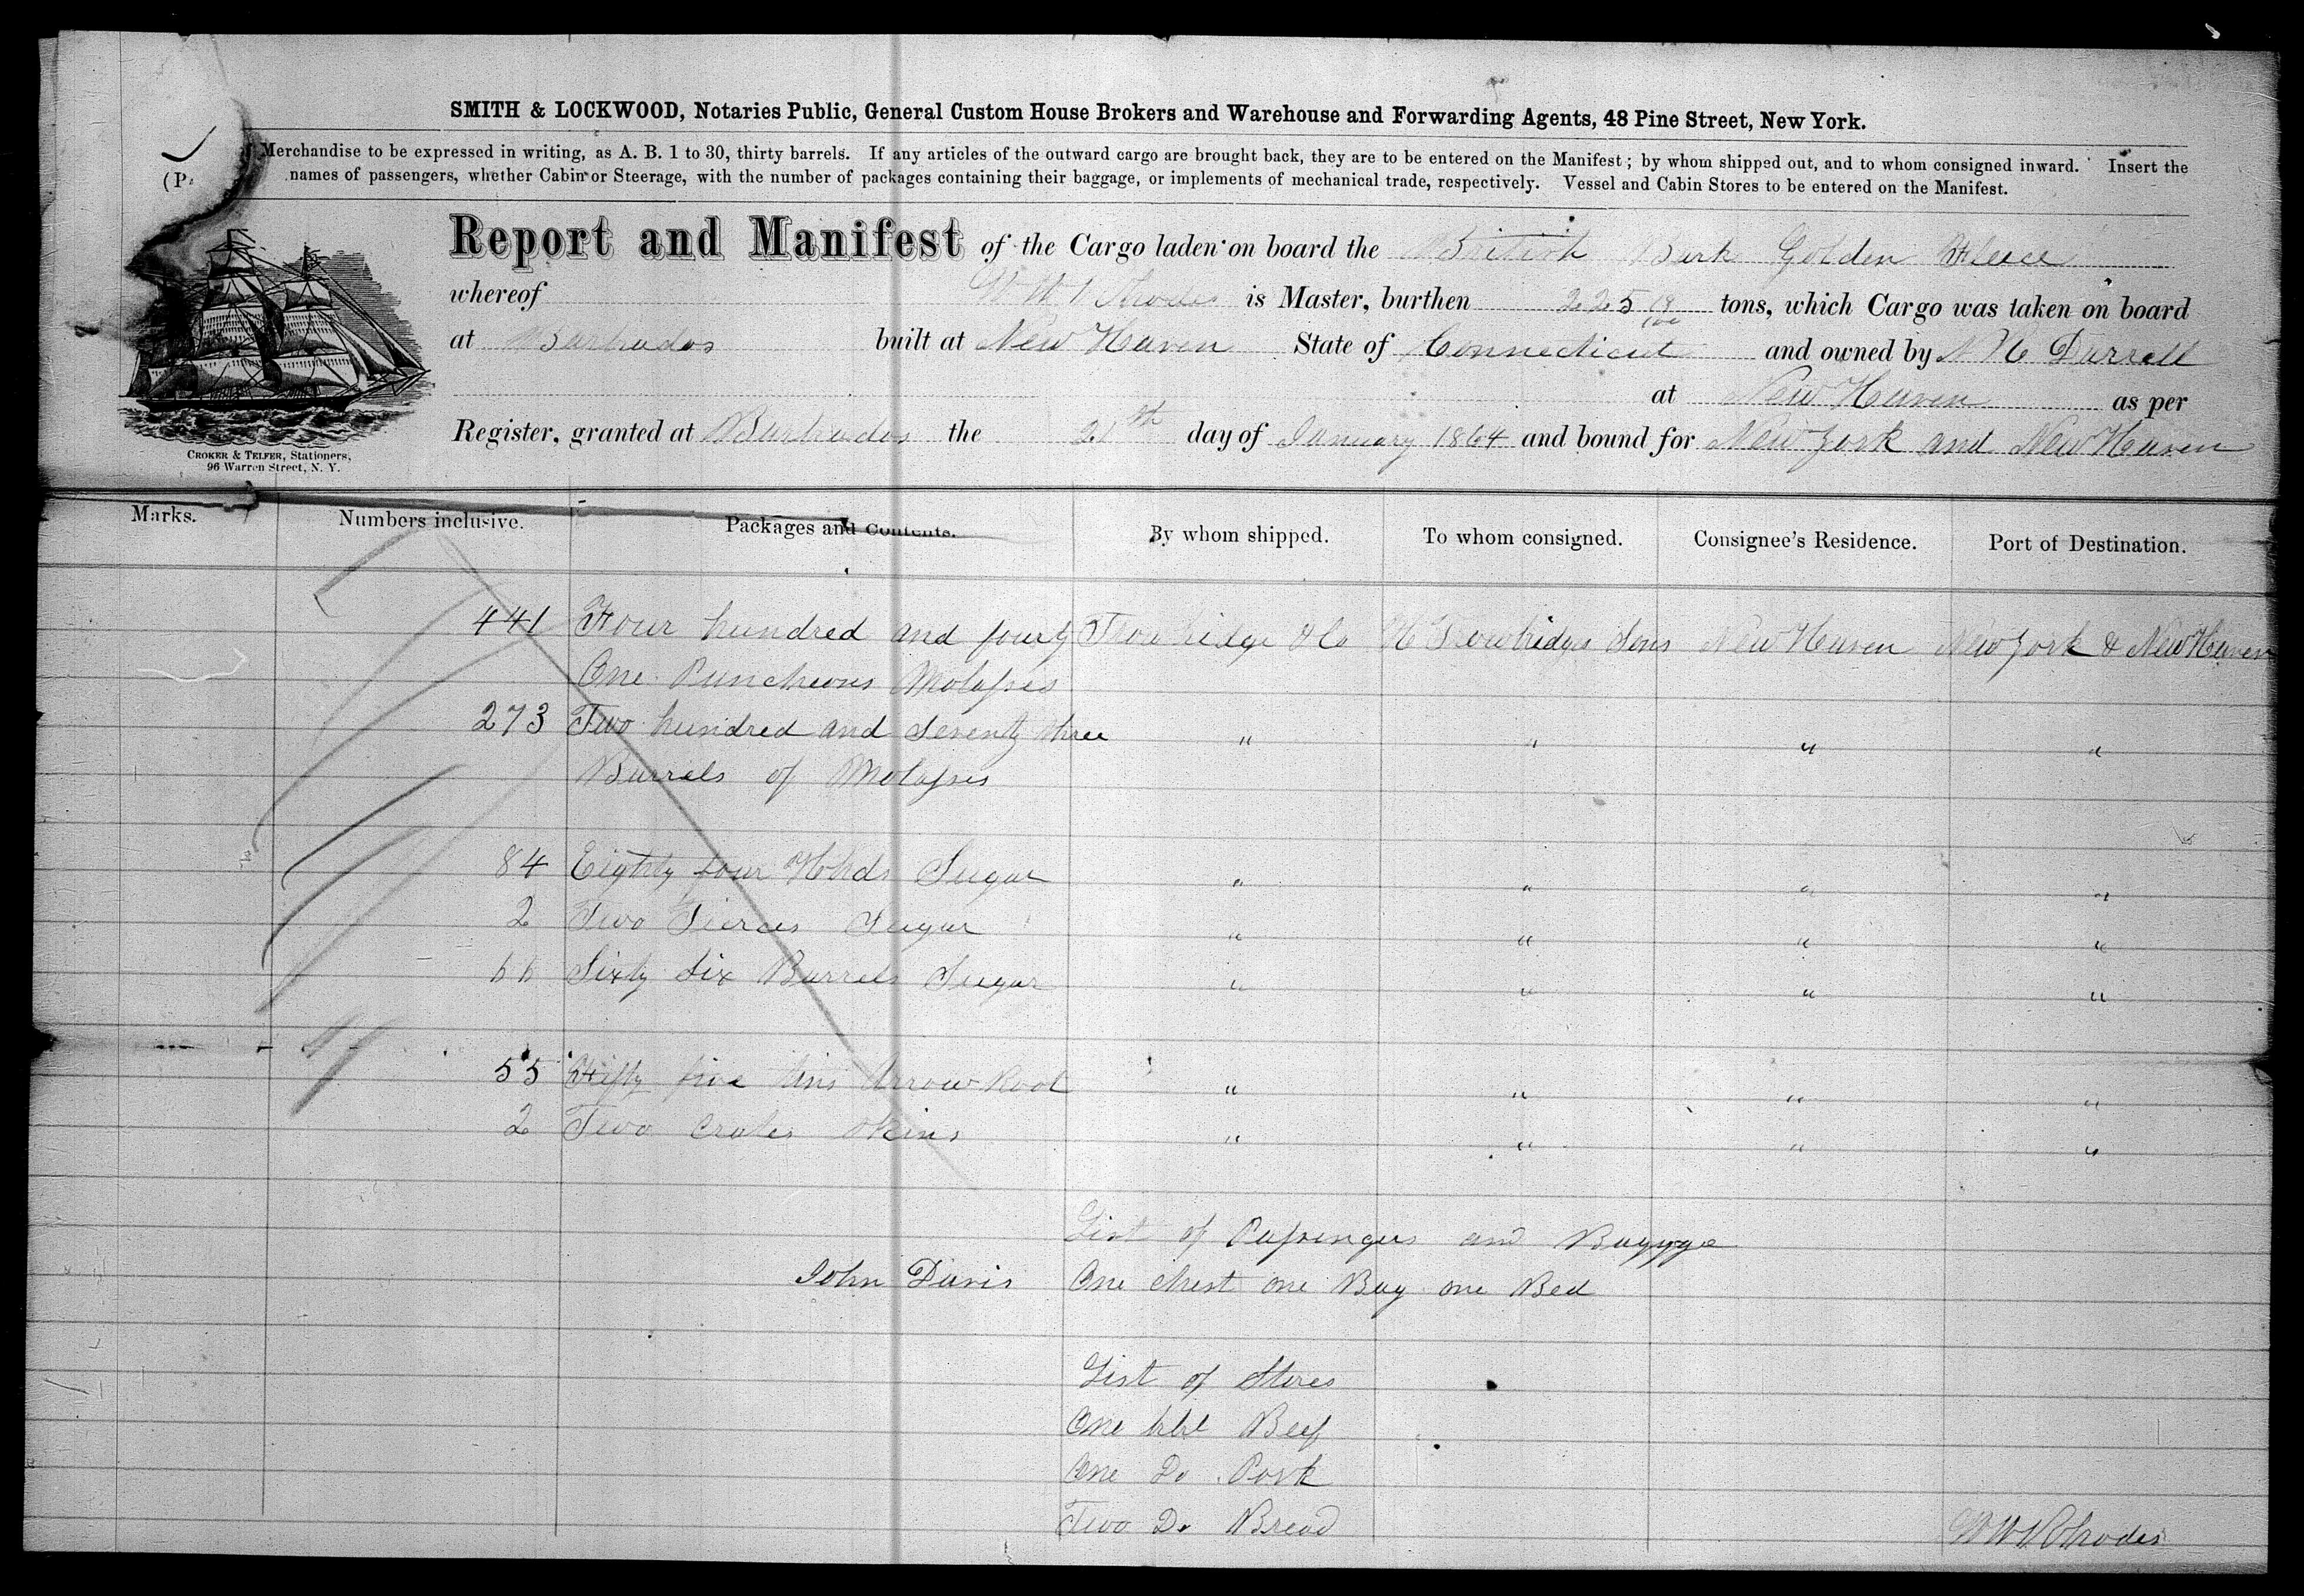 SMITH & LOCKWOOD, Notaries Public, General Custom House Brokers and Warehouse and Forwarding Agents, 48 Pine Street, New York.
Merchandise to be expressed in writing, as A. B. 1 to 30, thirty barrels. If any articles of the outward cargo are brought back, they are to be entered on the Manifest; by whom shipped out, and to whom consigned inward. Insert the
names of passengers, whether Cabin or Steerage, with the number of packages containing their baggage, or implements of mechanical trade, respectively. Vessel and Cabin Stores to be entered on the Manifest.
Report and Manifest of the Cargo laden on board the British Bark Golden Fleece
whereof is Master, burthen 225 19/100 tons, which Cargo was taken on board
at Barbados built at New Haven State of Connecticut and owned by N H Darrell
at New Haven as per
Register, granted at Barbados the 21th day of January 1864 and bound for New York and New Haven
CROKER & TELFER, Stationers,
96 Warren Street, N. Y.
Marks. Numbers inclusive. Packages and Contents. By whom shipped. To whom consigned. Consignee's Residence. Port of Destination.
441 Four hundred and fourty Trowbridge & Co H Trowbridge Sons New Haven New York & New Haven
One Puncheons Molasses
273 Two hundred and Seventy three " " " "
Barrels of Molasses
84 Eighty four Hhds Sugar " " " "
2 Two Tierces Sugar " " " "
66 Sixty Six Barrels Sugar " " " "
55 Fifty five tins Arrow Root " " " "
2 Two Crates Skins " " " "
List of Passengers and Baggage
John Davis One chest one Bag one Bed
List of Stores
One bbl Beef
One Do Pork
Two Do Bread
Rhodes